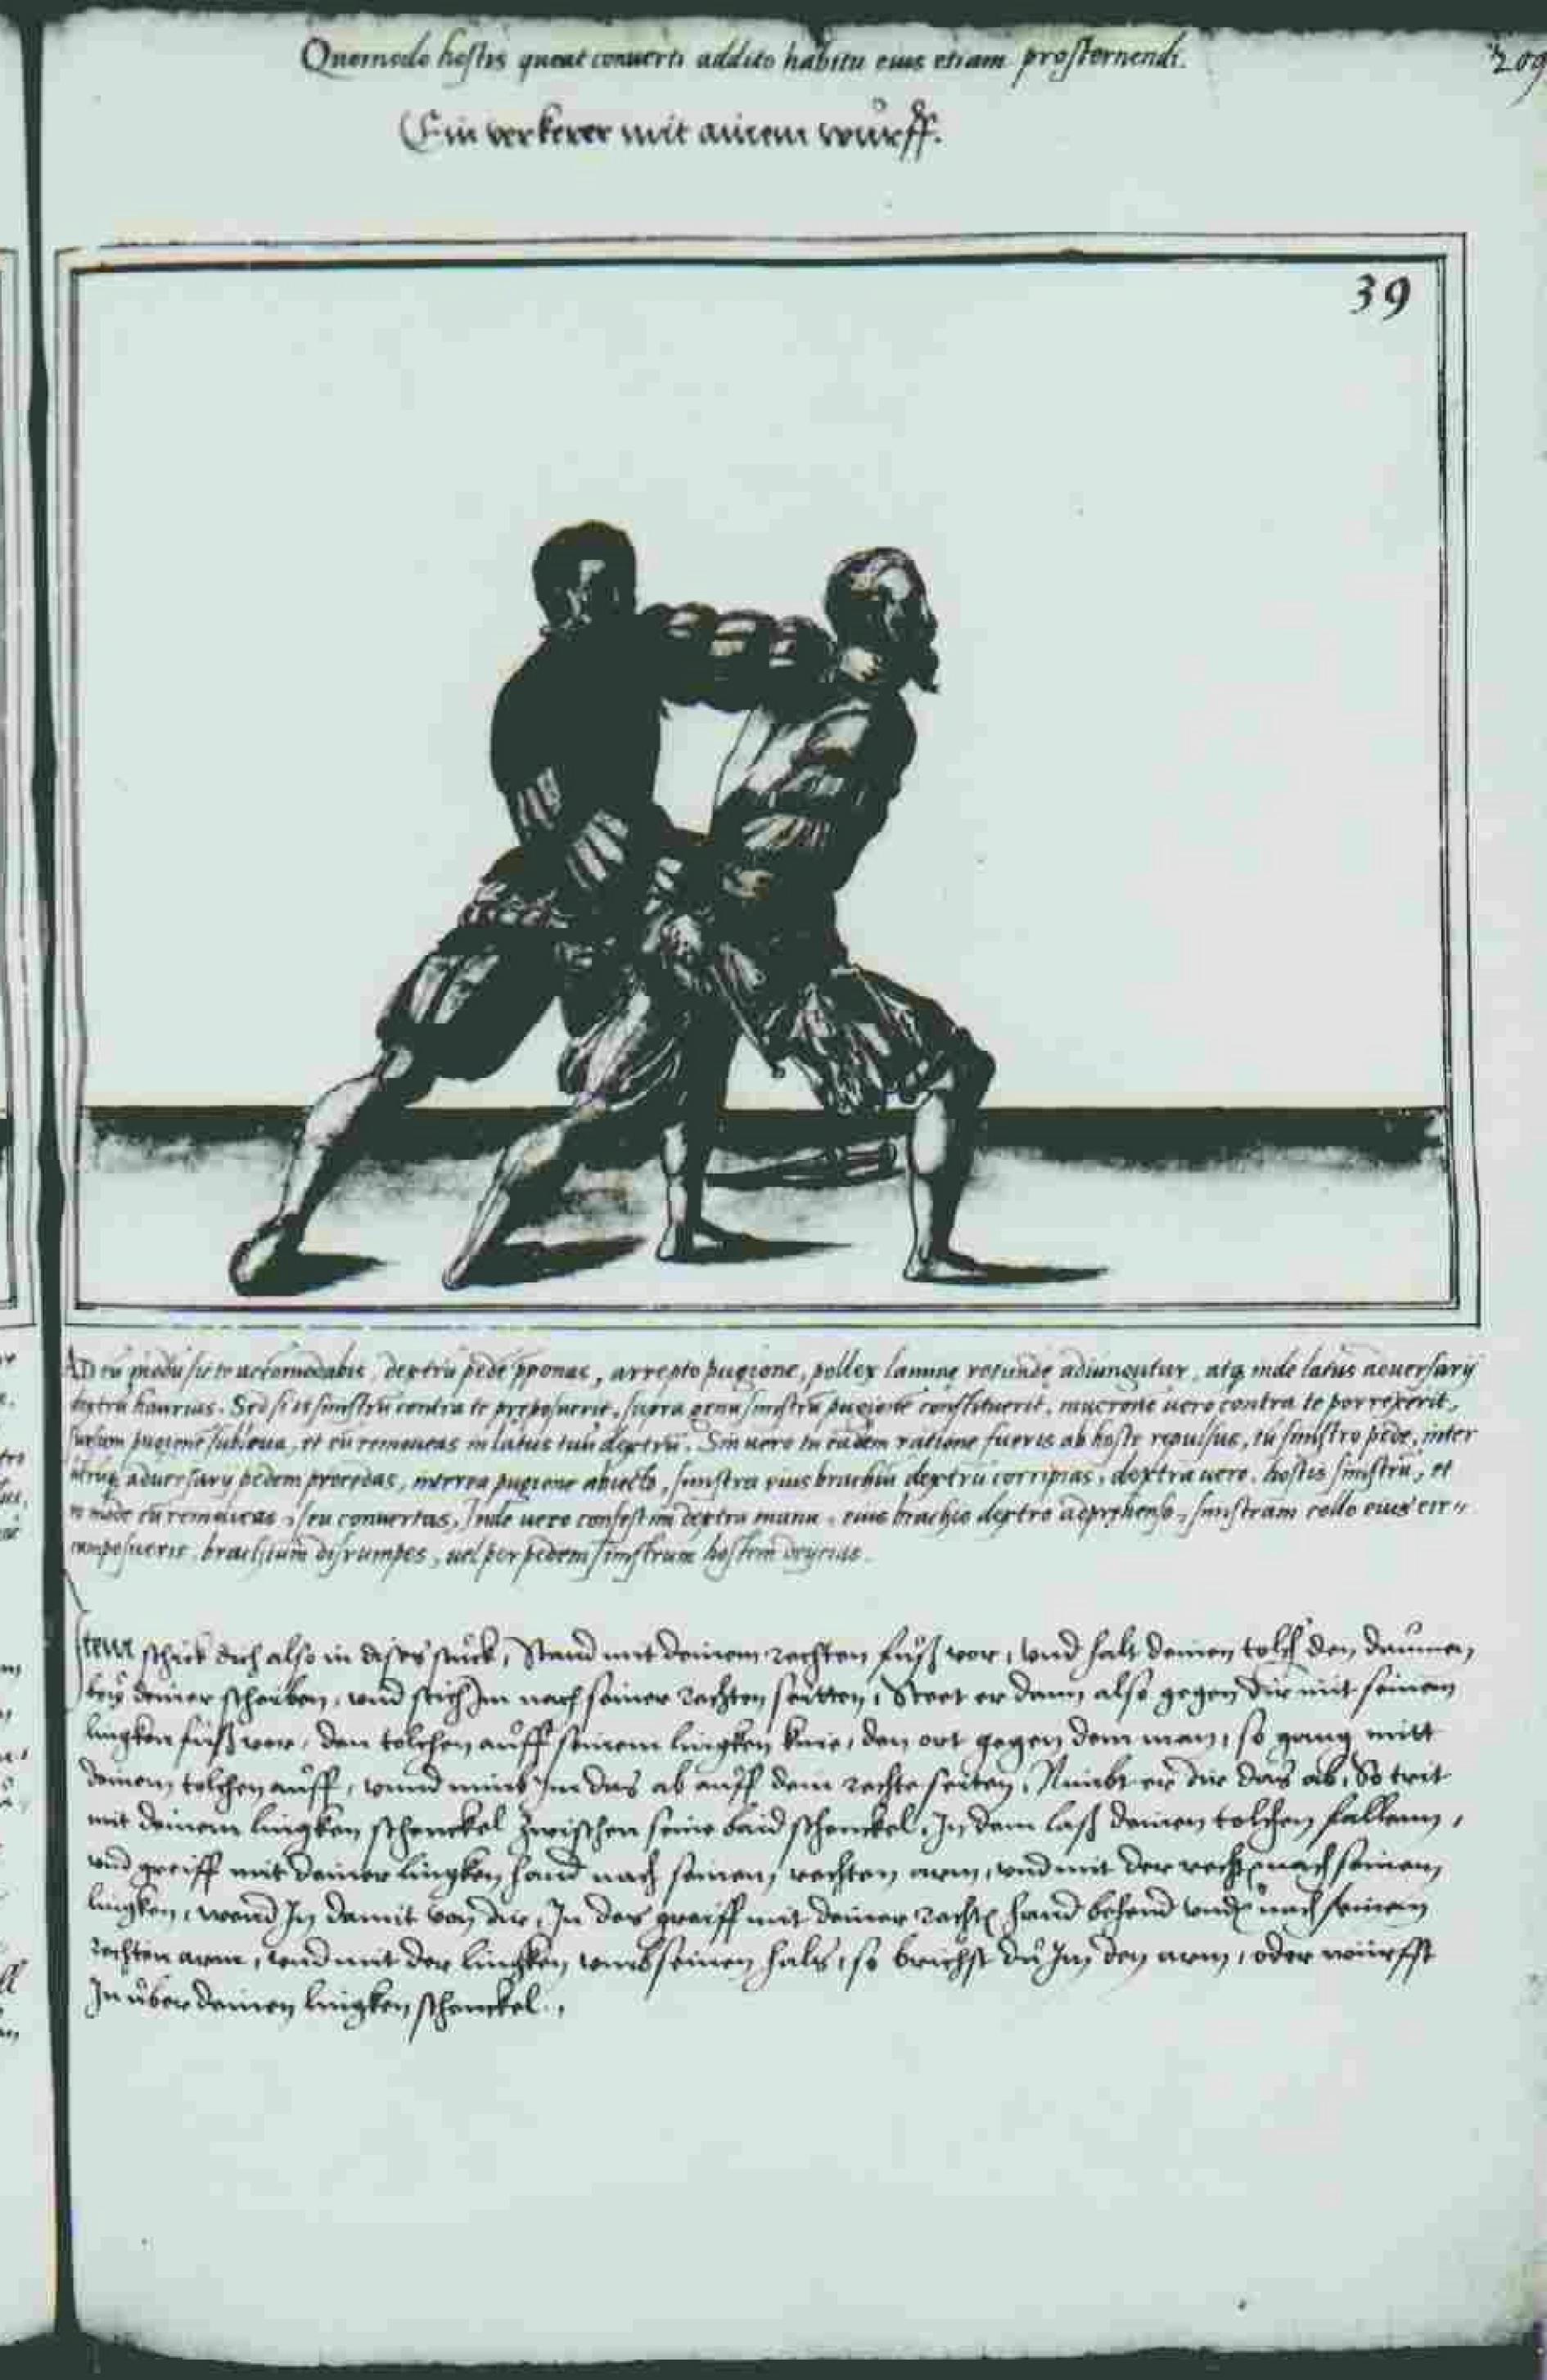 Quomodo hostis queat conuerti addito habitu eius etiam prosternendi.
209
Ein verkerer mit ainem wůrff.
39
AD eũ modũ sic te accomodabis, dextrũ pedẽ p̱ponas, arrepto pugione, pollex lamine rotundę adiungatur, atq; inde latus aduersarij
dextrũ haurias. Sed si is sinistrũ contra te preposuerit, supra genu sinistrũ pugionẽ constituerit, mucronẽ uero contra te porrexerit,
sursum pugione subleua, et eũ remoueas in latus tuũ dextrũ. Sin uero tu eadem ratione fueris ab hoste repulsus, tu sinistro pede, inter
utrũq; aduersarij pedem procedas, interea pugione abiecto, sinistra eius brachiũ dextrũ corripias, dextra uero, hostis sinistrũ, et
eũ remoueas, seu conuertas. Inde uero confestim dextra manu, eius brachio dextro adprehenso, sinistram collo eius cir=
cumposueris, brachium disrumpes, uel per pedem sinistrum hostem deijcias.
Item schick dich also in dises stuck, Stand mit deinem rechten fůß vor, vnd halt deinen tolch den daumen,
bey deiner scheiben, vnd stich Im nach seiner rechten seitten, Steet er dann also gegen dir mit seinem
lingken fůß vor, den tolchen auff seinem lingken knie, den ort gegen dem man, so gang mitt
deinem tolchen auff, vnnd nimb im das ab auff dein rechte seiten, Nimbt er dir das ab, So trit
mit deinem lingken schenckel zwischen seine baid schenckel, In dem laß deinen tolchen fallenn,
vnd greiff mit deiner lingken hand nach seinem, rechten arm, vnd mit der rechtñ nach seinem
lingken, wend In damit von dir, In des greiff mit deiner rechtñ hand behend nach seinem
rechten arm, vnd mit der lingken vmb seinen hals, so brichst dů Im den arm, oder würffst
In über deinen lingken schenckel.